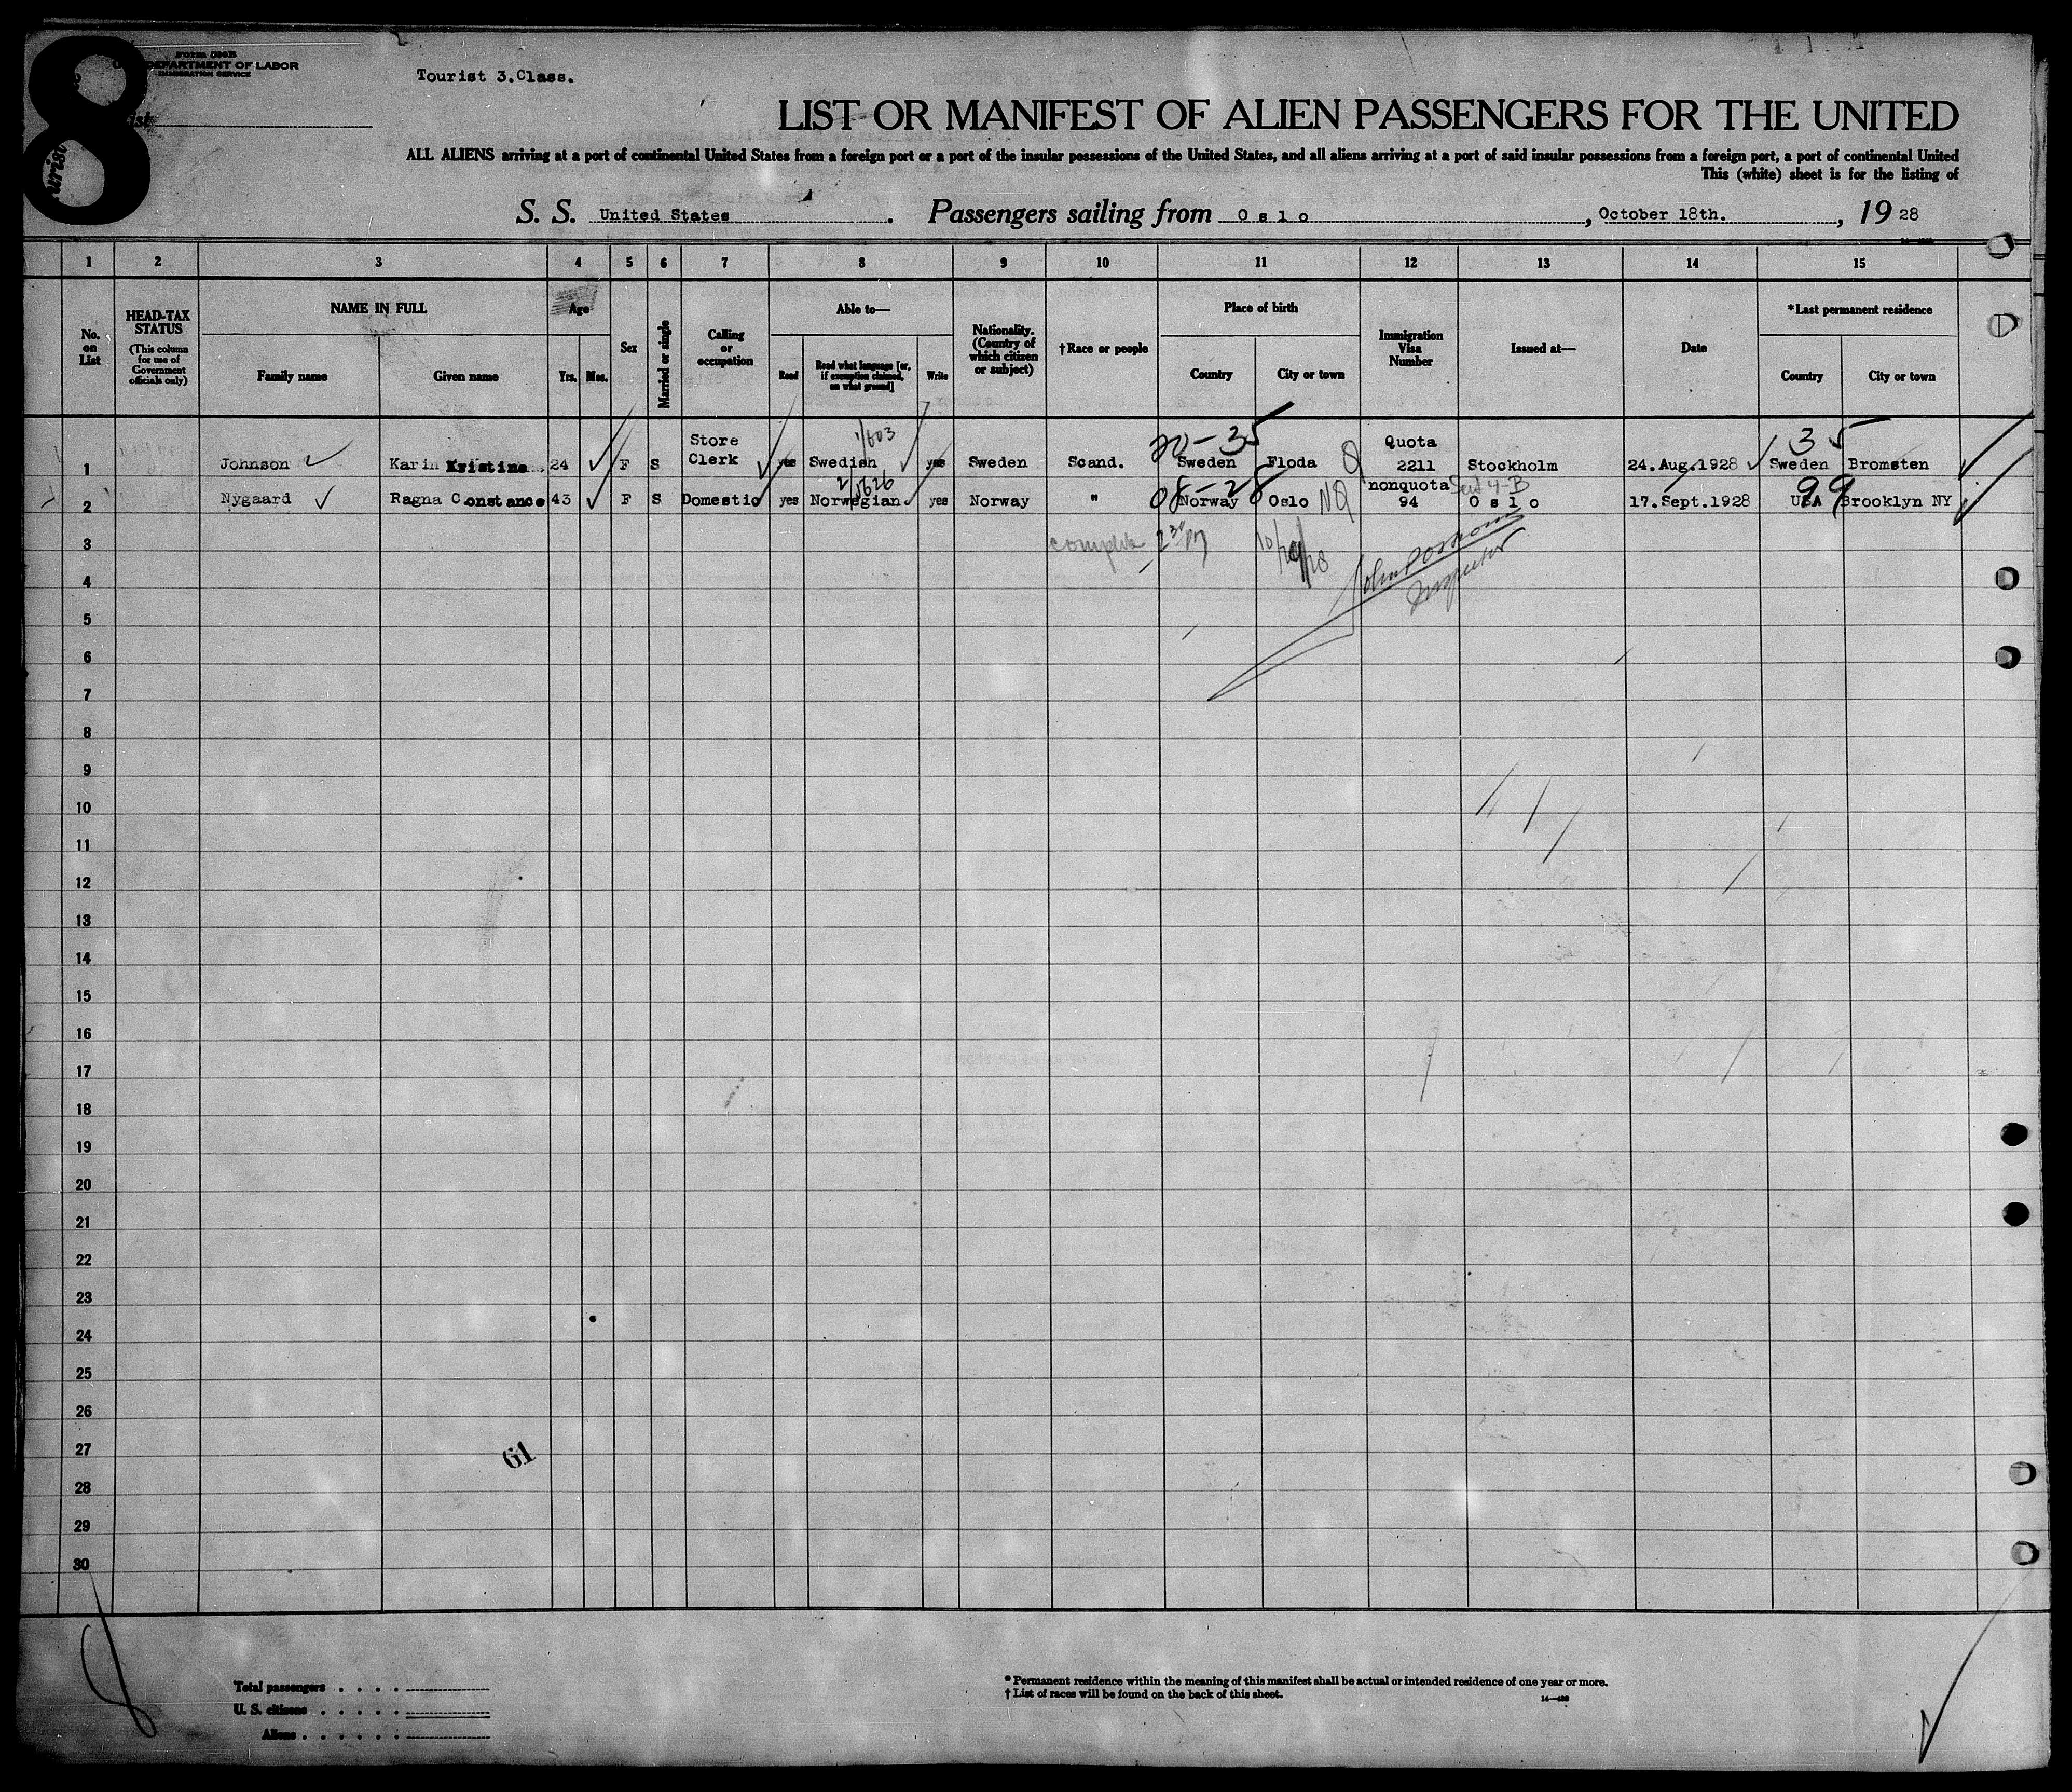 8
Form 500B
DEPARTMENT OF LABOR
IMMIGRATION SERVICE
Tourist 3.Class.
List
LIST OR MANIFEST OF ALIEN PASSENGERS FOR THE UNITED
ALL ALIENS arriving at a port of continental United States from a foreign port or a port of the insular possessions of the United States, and all aliens arriving at a port of said insular possessions from a foreign port, a port of continental United
This (white) sheet is for the listing of
S. S. United States. Passengers sailing from O s l o, October 18th., 19 28
1 2 3 4 5 6 7 8 9 10 11 12 13 14 15
No. on List
HEAD-TAX STATUS
(This column for use of Government officials only)
NAME IN FULL
Family name Given name
Age
Yrs. Mos.
Sex
Married or single
Calling or occupation
Able to—
Read
Read what language [or, if exemption claimed, on what ground]
Write
Nationality. (Country of which citizen or subject)
†Race or people
Place of birth
Country City or town
Immigration Visa Number
Issued at—
Date
*Last permanent residence
Country City or town
1/603 20-35 35
1 Johnson Karin Kristine 24 F S Store Clerk yes Swedish yes Sweden Scand. Sweden Floda Q Quota 2211 Stockholm 24.Aug.1928 Sweden Bromsten
2/1626 08-25 99
2 Nygaard Ragna Constance 43 F S Domestic yes Norwegian yes Norway " Norway Oslo NQ nonquota 94 4-B O s l o 17.Sept.1928 USA Brooklyn NY
3 2 30 PM
Inspector
4
5
6
7
8
9
10
11
12
13
14
15
16
17
18
19
20
21
22
23
24
25
26
27
61
28
29
30
Total passengers . . . .
U. S. citizens . . . . .
Aliens . . . . . .
* Permanent residence within the meaning of this manifest shall be actual or intended residence of one year or more.
† List of races will be found on the back of this sheet.